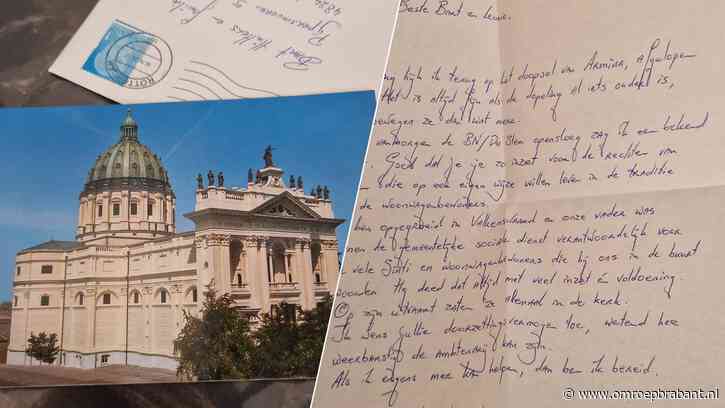 ROTT
Beste Brant en
kijk ik terug op het doopsel van Armina, afgelopen
Het is altijd fijn als de dopeling al iets ouder is,
bewegen ze dan wat meer.
de BN/De Stem opensloeg zag ik een bekend
Goed dat je je zo inzet voor de rechten van
die op een eigen wijze willen leven in de traditie
de woonwagenbewoners.
ben opgegroeid in Valkenswaard en onze vader was
de gemeentelijke sociale dienst verantwoordelijk voor
vele Sinti en woonwagenbewoners die bij ons in de buurt
woonden. Hij deed dat altijd met veel inzet en voldoening.
Op zijn uitvaart zaten ze allemaal in de kerk.
Ik wens jullie doorzettingsvermogen toe, wetend hoe
weerbarstig de ambtenarij kan zijn.
Als ik ergens mee kan helpen, dan ben ik bereid.
© www.omroepbrabant.nl